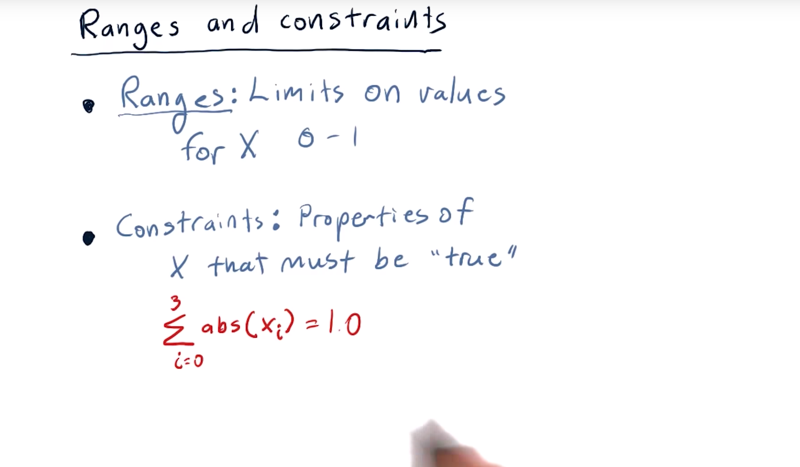 Ranges and constraints
• Ranges: Limits on values
for X 0-1
• Constraints: Properties of
X that must be "true"
3
Σ abs(xᵢ) = 1.0
i=0